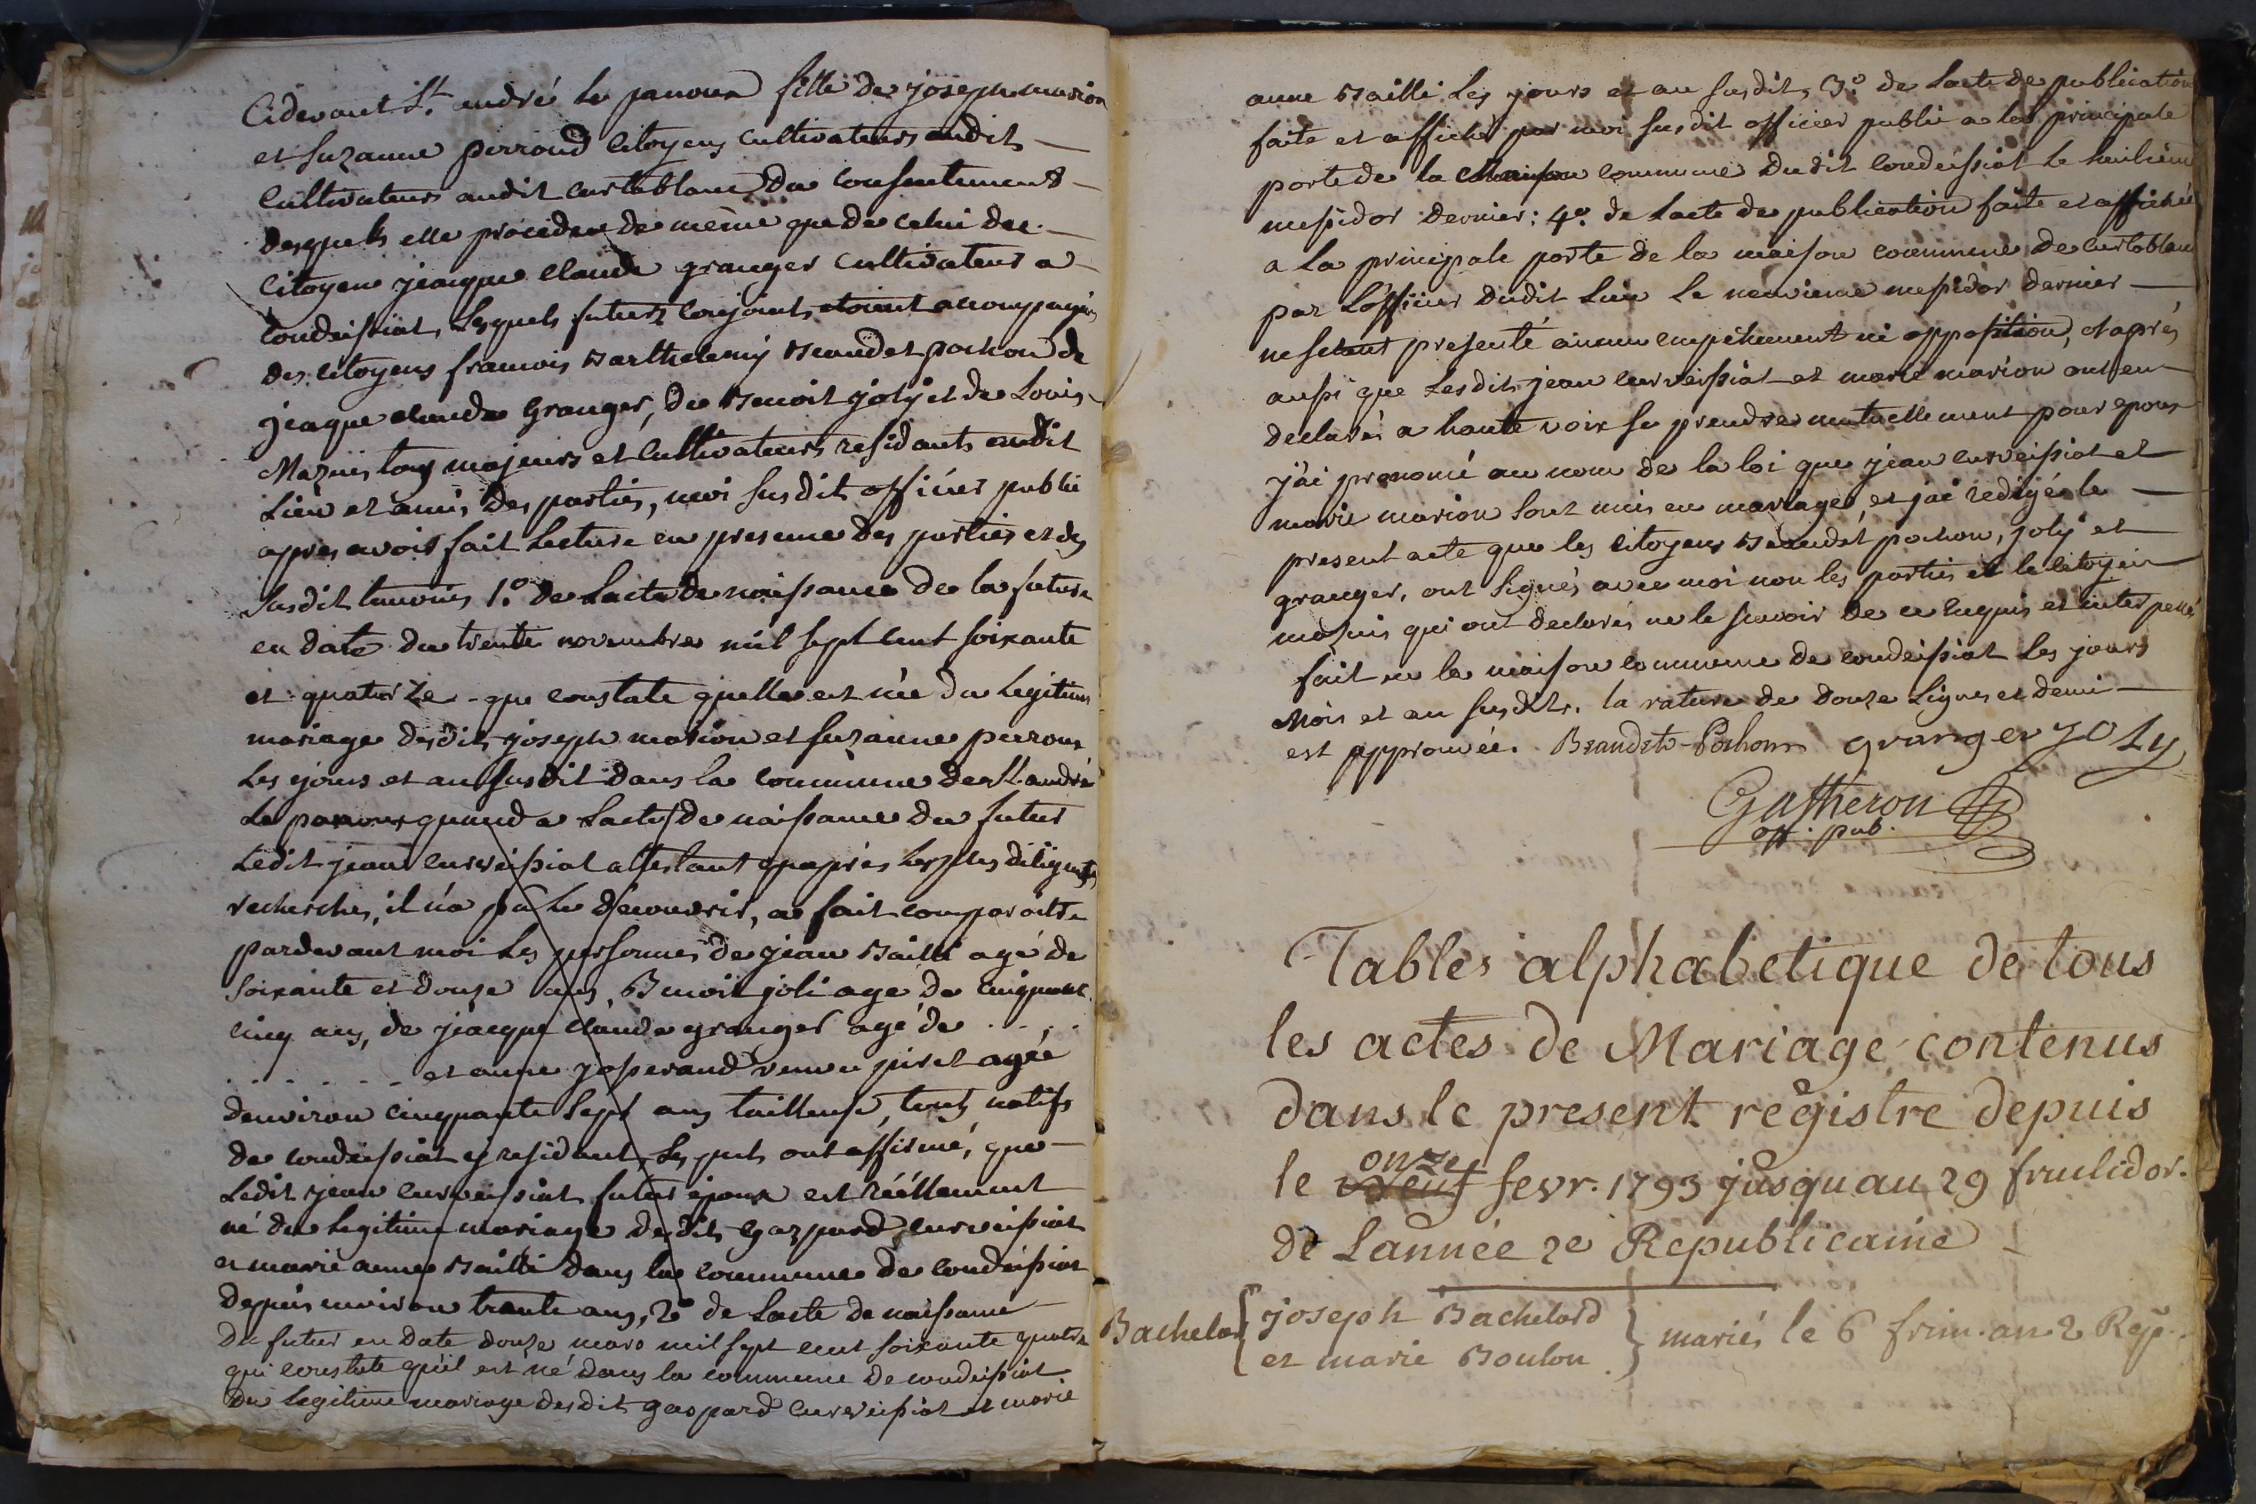 Cidevant St. andré le panoux fille de joseph marion
et suzanne perroud citoyens cultivateurs audit
cultivateurs audit curtablanc du consentement
desquels elle procedee de même que de celui du
citoyen jacque claude granger cultivateur a
condeissiat, lesquels futurs conjoints etoient accompagnés
des citoyens francois Barthelemy Beaudet pochon de
jeaque claude Granger, de Benoit joly et de Louis
Mazuis tous majeurs et cultivateurs residants audit
Lieu et amis des parties, moi susdit officier public
apres avoir fait lecture en presence des parties et des
susdit temoins 1.º de Lacte de naissance de la future
en date du trente novembre mil sept cent soixante
et quatorze - que constate quelle est née du legitime
mariage desdits joseph marion et suzanne perroux
Les jours et an susdit dans la commune de St. andré
Le panoux quand a Lacte de naissance du futur
Ledit jean curveissiat attestant qu'aprés les plus diligentes
recherches, il n'a pu le découvrir, a fait comparoitre
pardevant moi Les personnes de jean Bailli agé de
soixante et douze ans, Benoit joli age de cinquante
cinq ans, de jeacque claude granger agé de . . . .
. . . . . . et anne josserand veuve piret agée
denviron cinquante sept ans tailleuse, touts natifs
de condeissiat y residant, Lesquels ont affirmé, que
Ledit jean curveissiat futur époux est réellement
né du legitime mariage desdits Gazpard curveissiat
et marie anne Bailli dans la commune de condeissiat
depuis environ trente ans, 2º de Lacte de naissance
du futur en date douze mars mil sept cent soixante quatre
qui constate qu'il est né dans la commune de condeissiat
du legitime mariage desdit gaspard curveissiat et marie
anne Bailli Les jours et an susdits, 3.º de Lacte de publication
faite et affichée par moi susdit officier public a la principale
porte de la Maison commune dudit condeissiat le huitieme
messidor dernier: 4º. de Lacte de publication faite et affichée
a La principale porte de la maison commune de curtablanc
par L'officier dudit Lieu Le neuvieme messidor dernier
ne setant presenté aucun empêchement ni opposition, et aprés
aussi que Lesdits jean curveissiat et marie marion ont eu
declarés a haute voix se prendre mutuellement pour epoux
j'ai prononcé au nom de la loi que jean curveissiat et
marie marion sont unis en mariage, et j'ai redigé le
present acte que les citoyens Beaudet pochon, joly et
granger, ont signés avec moi non les parties et le citoyen
mazuis qui ont declarés ne le scavoir de ce enquis et interpellé
fait en la maison commune de condeissiat Les jours
Mois et an susdits. la rature de douze Lignes et demi
est approuvée. Beaudet-Pochon granger JOLy
Gatheron
off. pub.
Tables alphabetique de tous
les actes de Mariage contenus
dans le present regístre depuis
onze
le fevr. 1793 jusquau 29 fructidor.
de Lannée 2e Republicaine
Bachelard { joseph Bachelard
et marie Boulon } mariés le 6 frim. an 2 Rep.